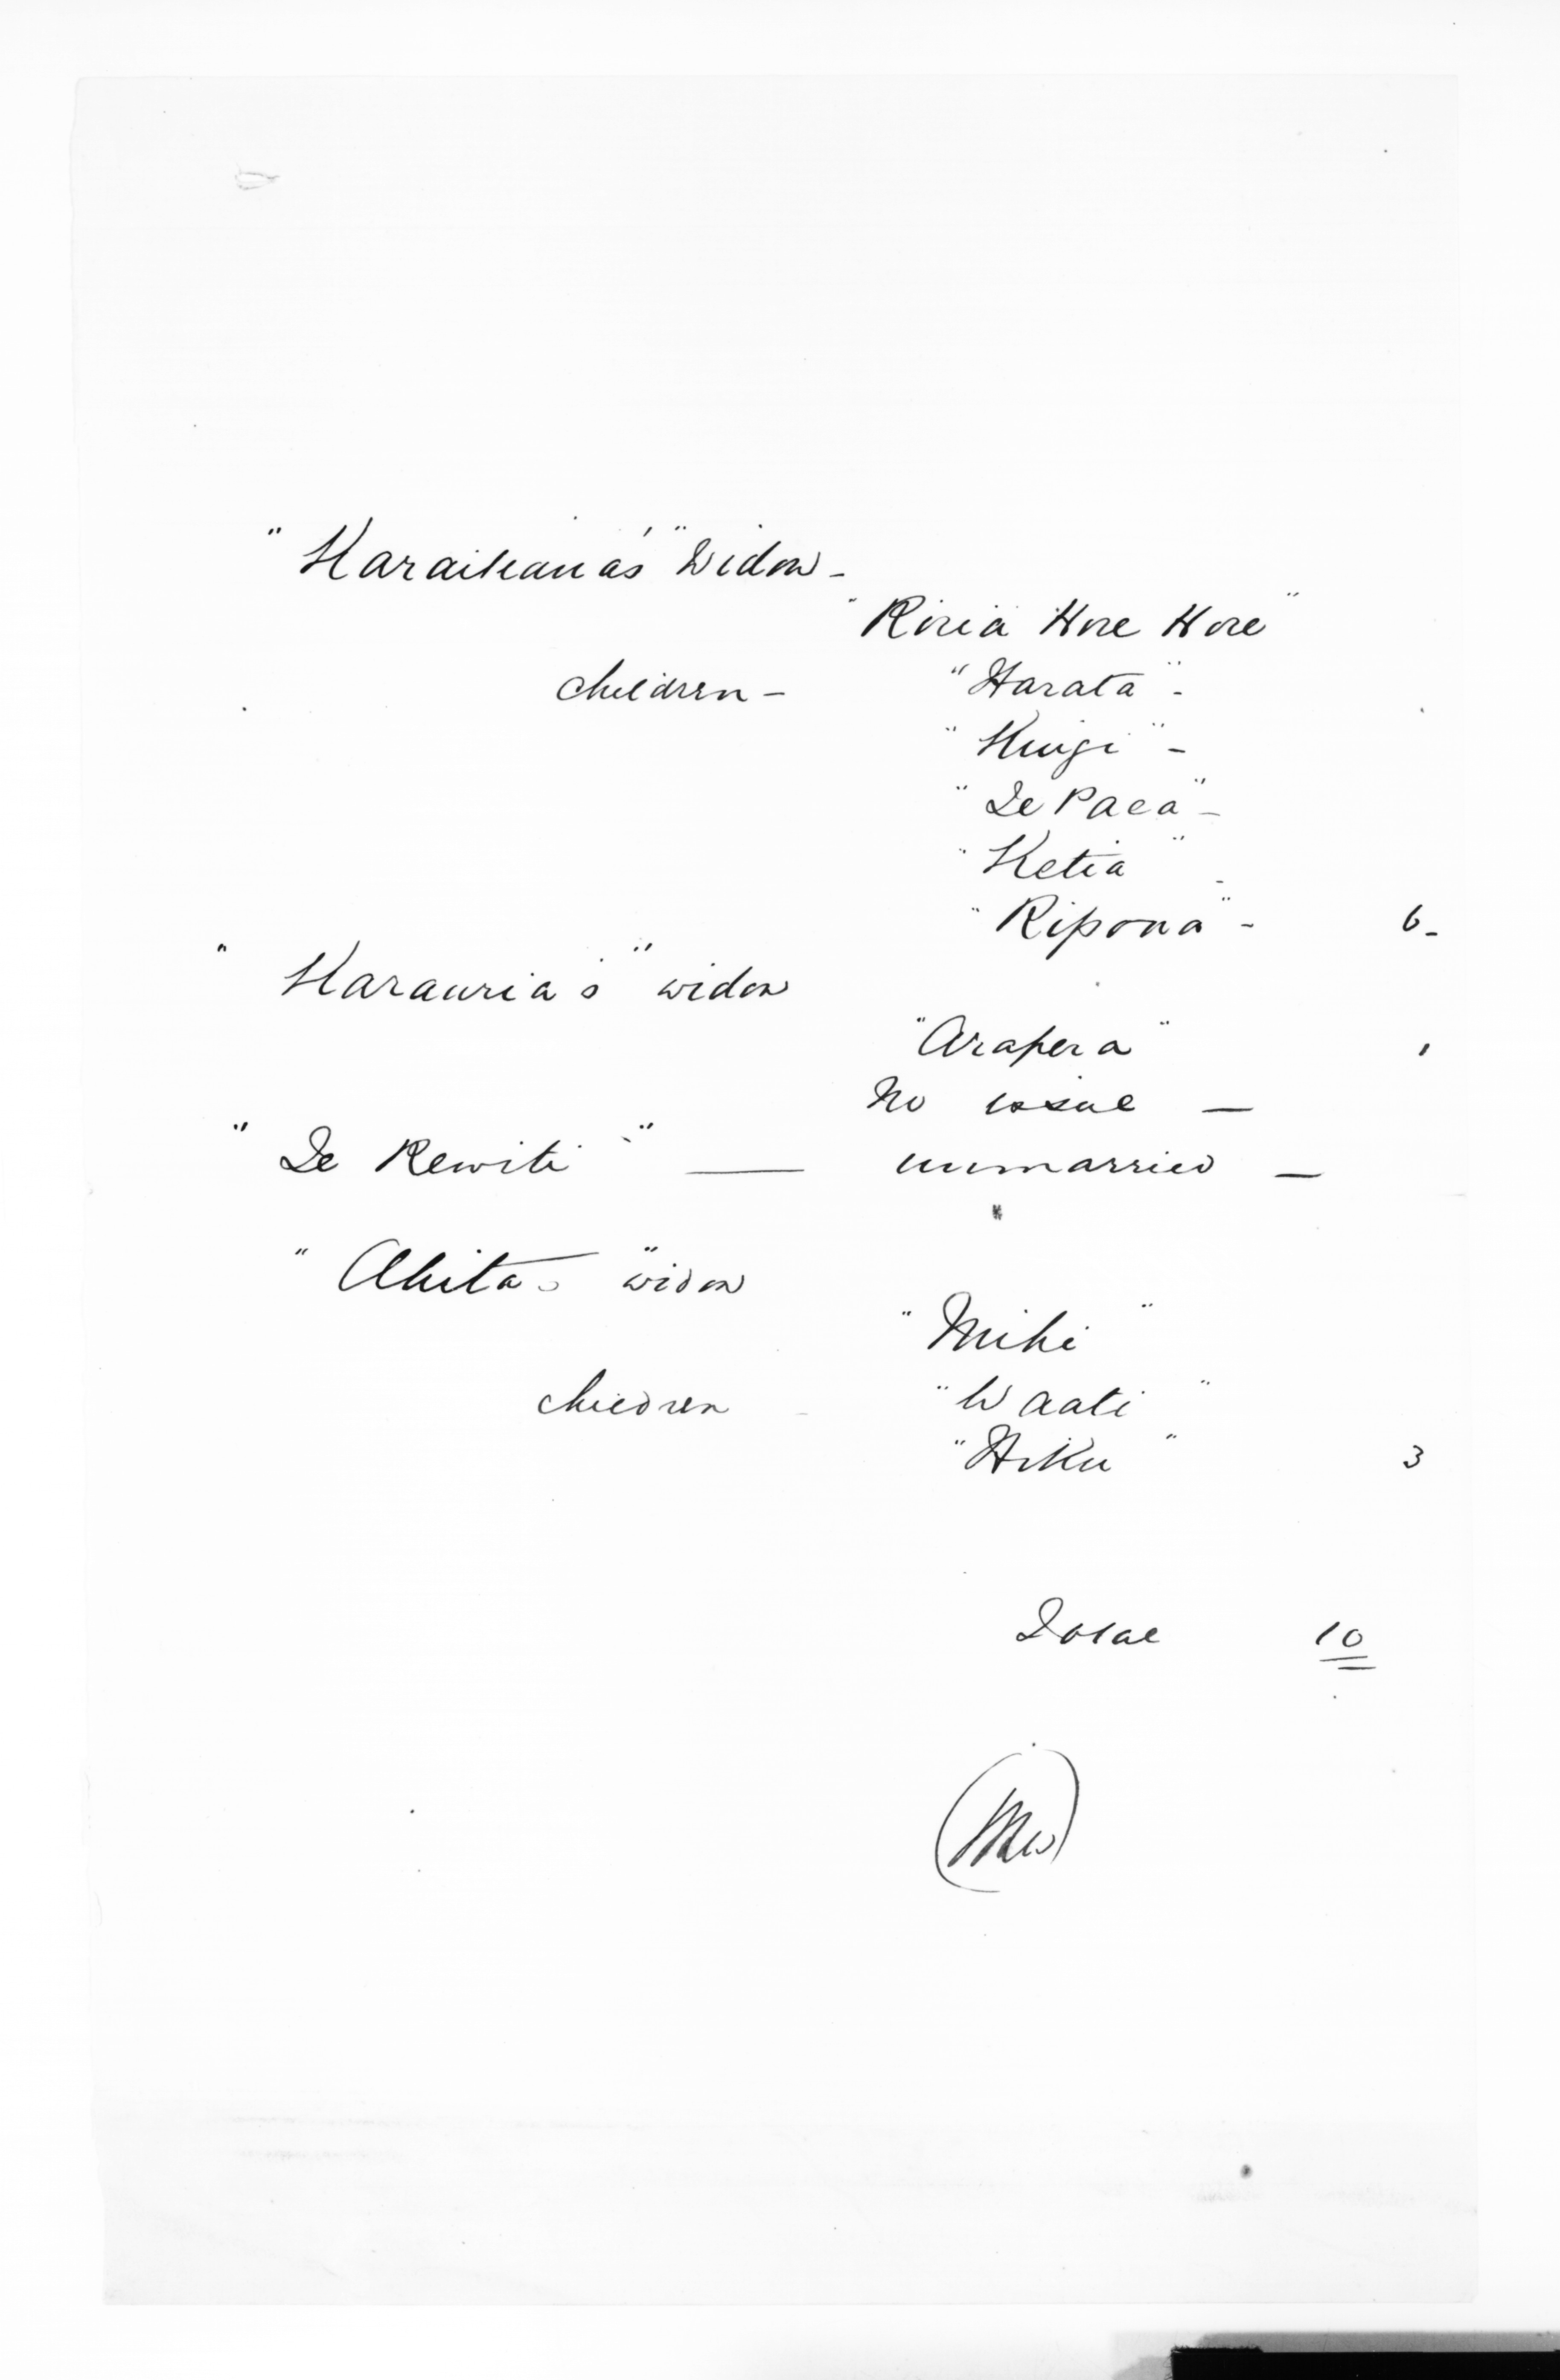 "Karaitiana's" Widow -
"Riria Hore Hore"
children - "Harata" -
"Kingi" -
"Te Paea" -
"Ketia" -
"Ripona" - 6 -
"Karauria's" widow
"Arapera" 1
No issue —
"Te Rewiti" — unmarried —
"Ahitas" widow
"Mihi"
children - "Waati"
"Hiku" 3
Total 10